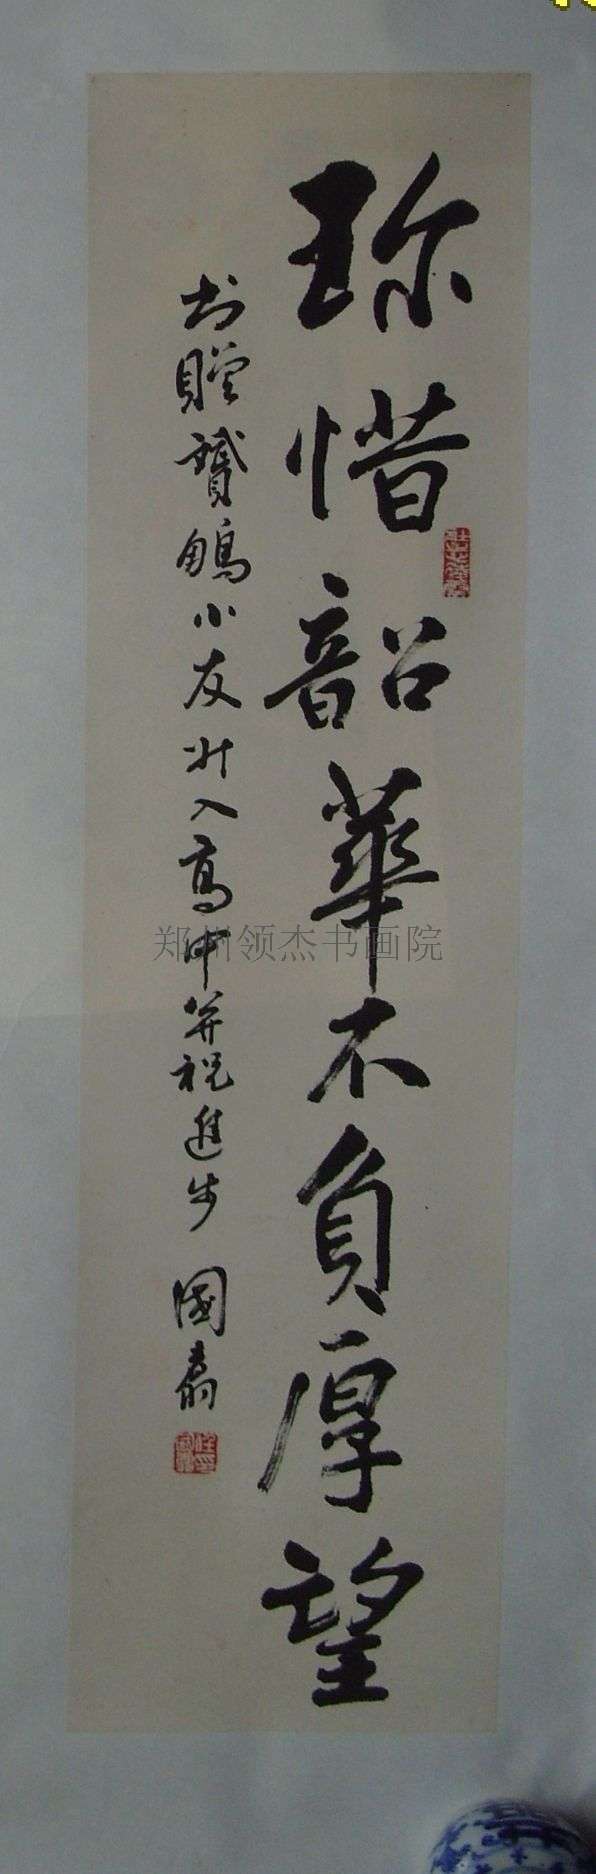 珎惜韶華不負厚望
書贈贇鵬小友升入高中并祝進步 國
郑州领杰书画院